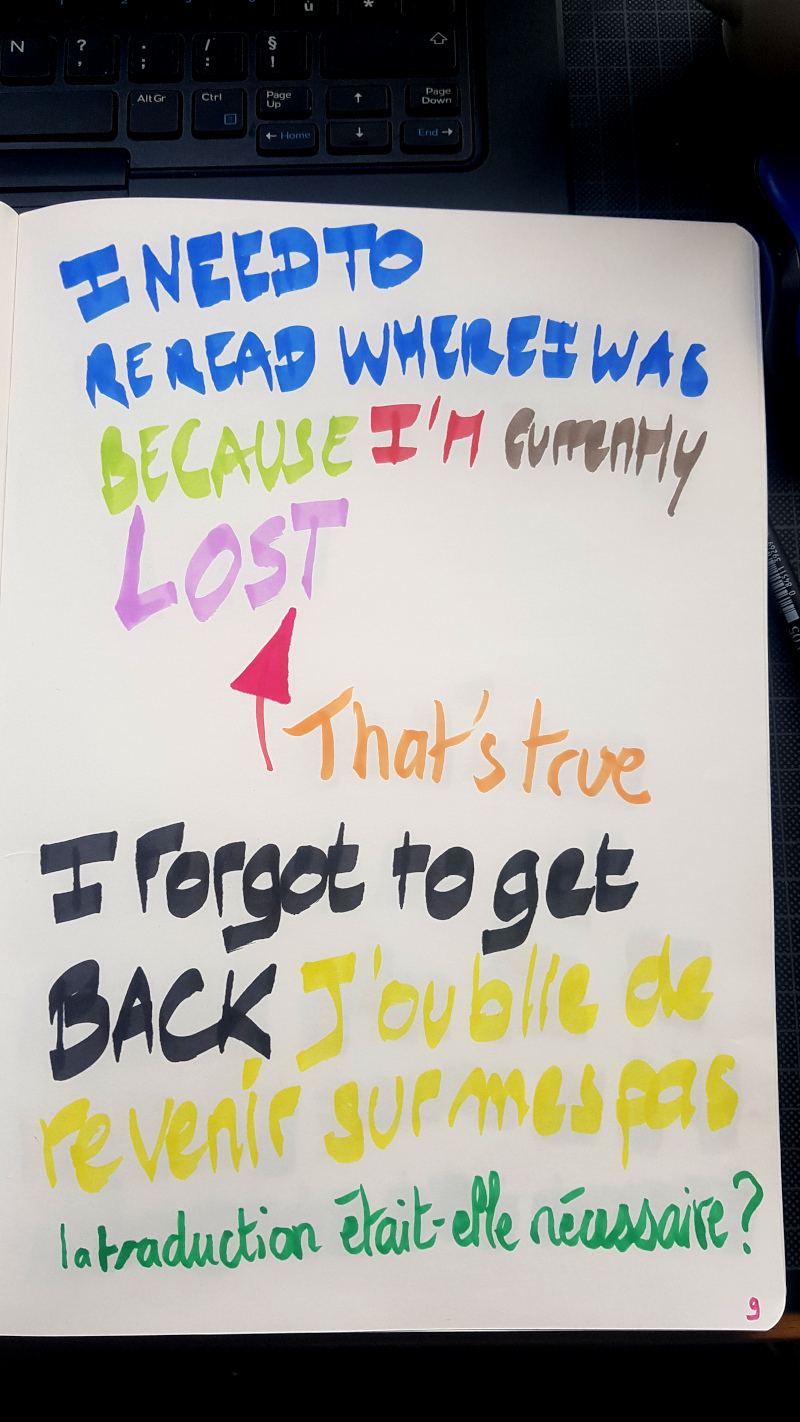 ù *
N ? , . ; / : § !
Alt Gr Ctrl Page Up ↑ Page Down
← Home ↓ End →
I NEED TO
REREAD WHERE I WAS
BECAUSE I'M currently
LOST
That's true
I forgot to get
BACK J'oublie de
revenir sur mes pas
la traduction était-elle nécessaire?
9